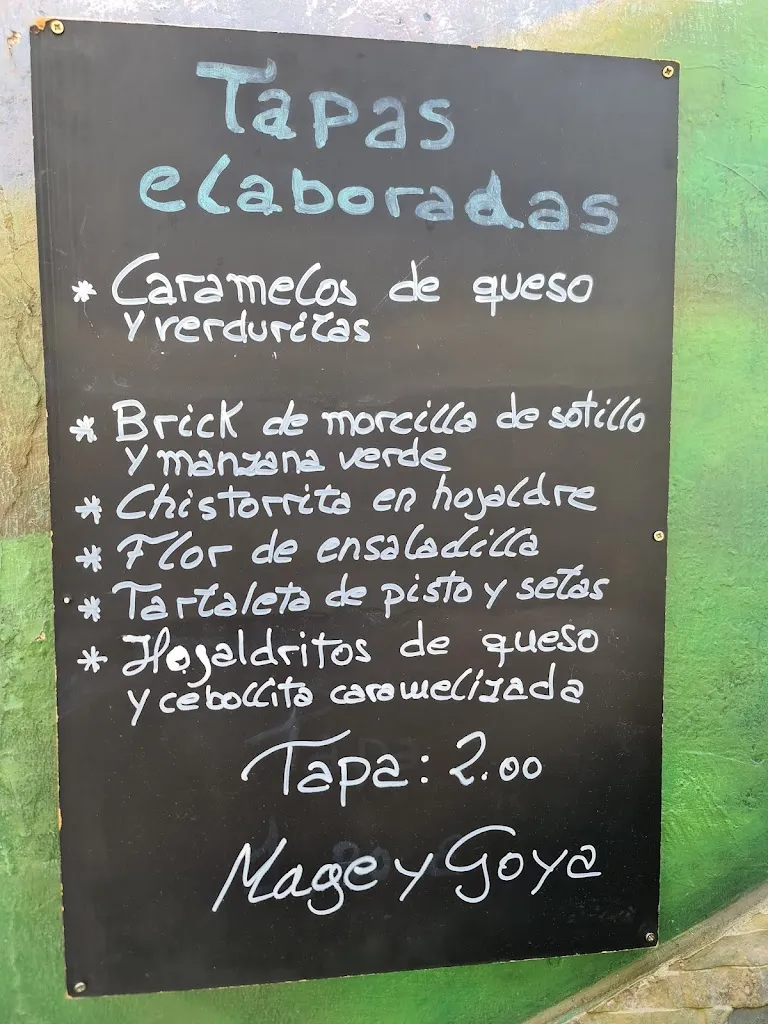 Tapas
elaboradas
* Caramelos de queso
y verduritas
* Brick de morcilla de sotillo
y manzana verde
* Chistorrita en hojaldre
* Flor de ensaladilla
* Tartaleta de pisto y setas
* Hojaldritos de queso
y cebollita caramelizada
Tapa: 2.00
Mage y Goya